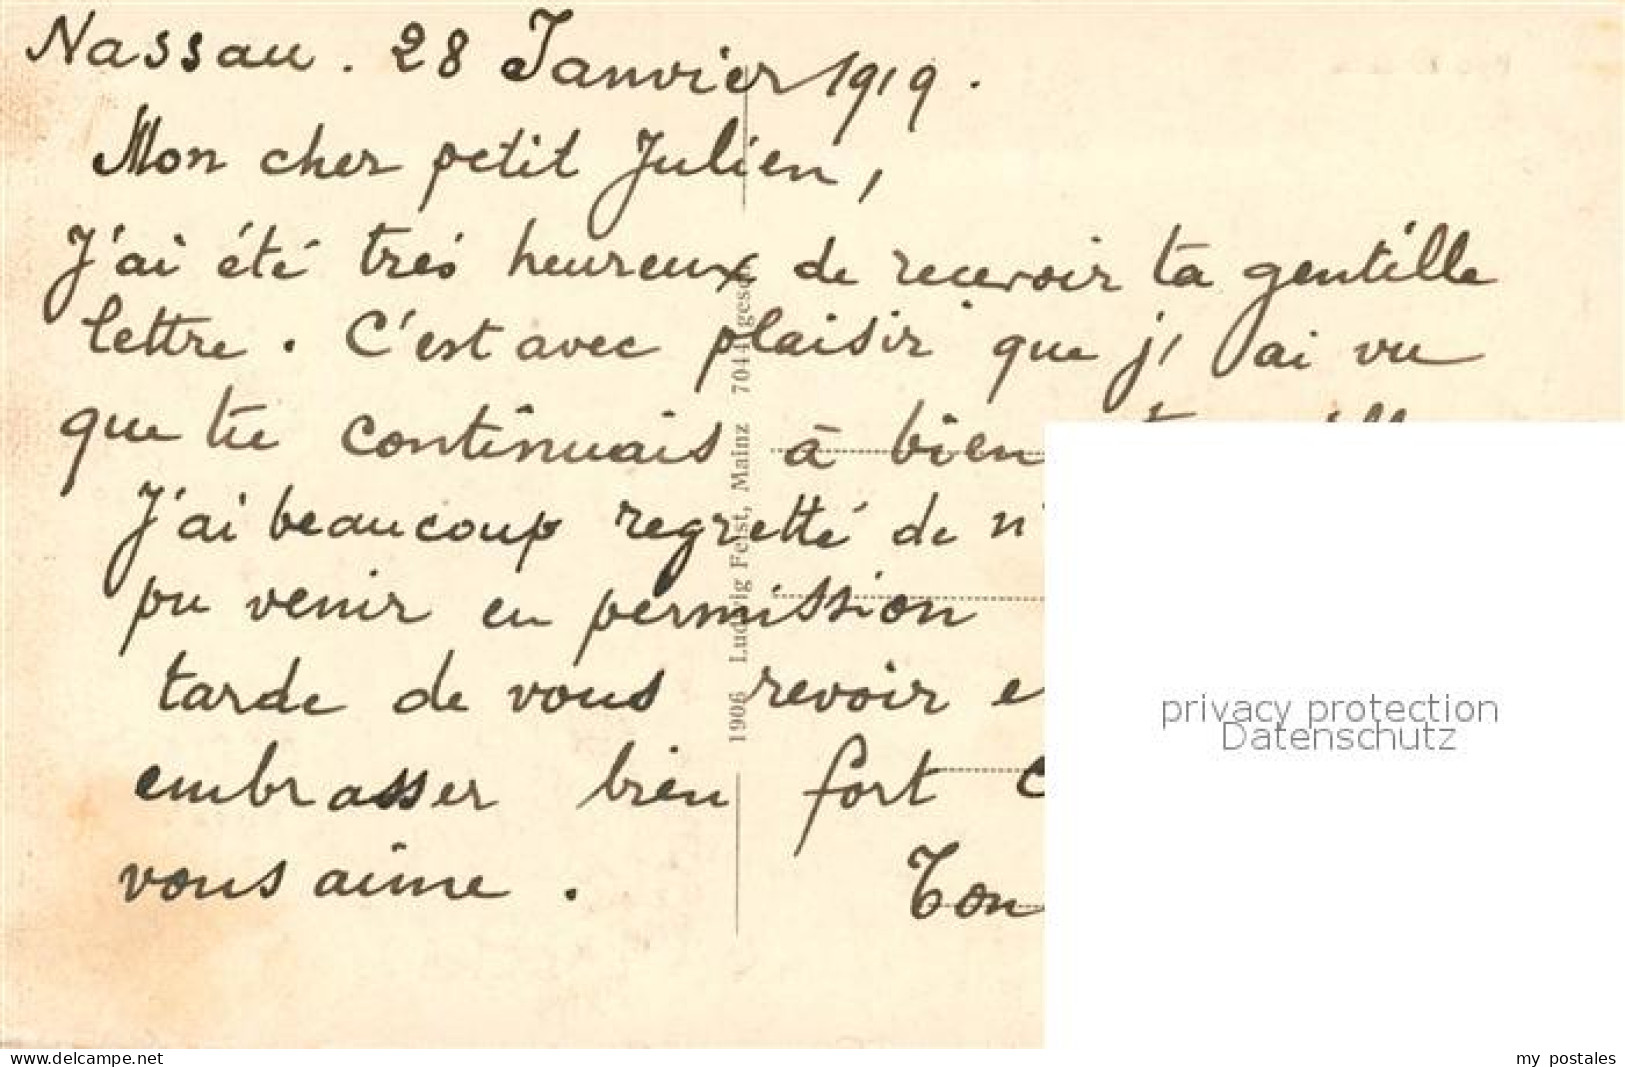 Nassau. 28 Janvier 1919.
Mon cher petit Julien,
J'ai été très heureux de recevoir ta gentille
lettre. C'est avec plaisir que j'ai vu
que tu continuais à bien
J'ai beaucoup regretté de n'
pu venir en permission
tarde de vous revoir e
embrasser bien fort c
vous aime.
Ton
1906 Ludwig Feist, Mainz 704
privacy protection
Datenschutz
www.delcampe.net
my_postales